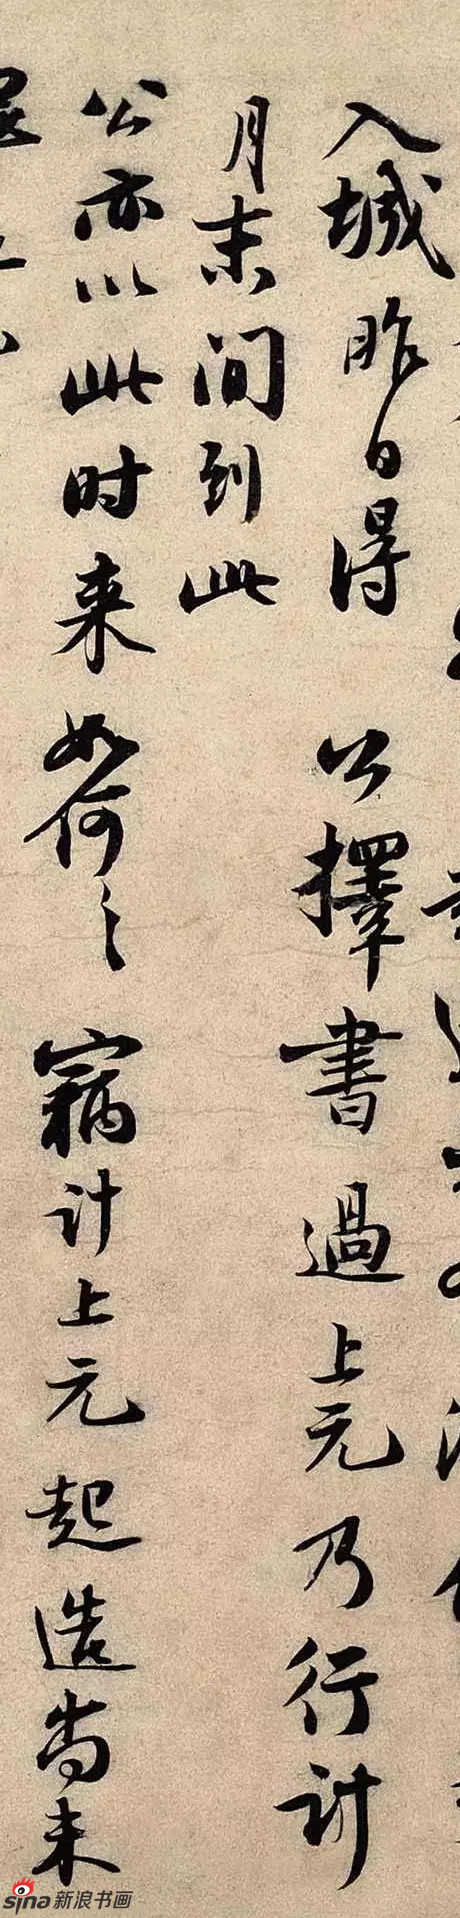 入城昨日得公擇書過上元乃行計
月末間到此
公亦以此時来如何〻竊計上元起造尚未
sina新浪书画